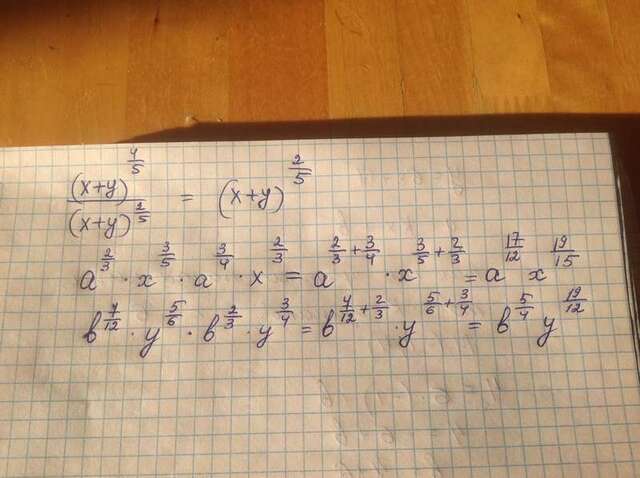 (x+y)^{4/5} / (x+y)^{2/5} = (x+y)^{2/5}
a^{2/3} · x^{3/5} · a^{3/4} · x^{2/3} = a^{2/3 + 3/4} · x^{3/5 + 2/3} = a^{17/12} x^{19/15}
в^{7/12} · y^{5/6} · в^{2/3} · y^{3/4} = в^{7/12 + 2/3} · y^{5/6 + 3/4} = в^{5/4} y^{19/12}